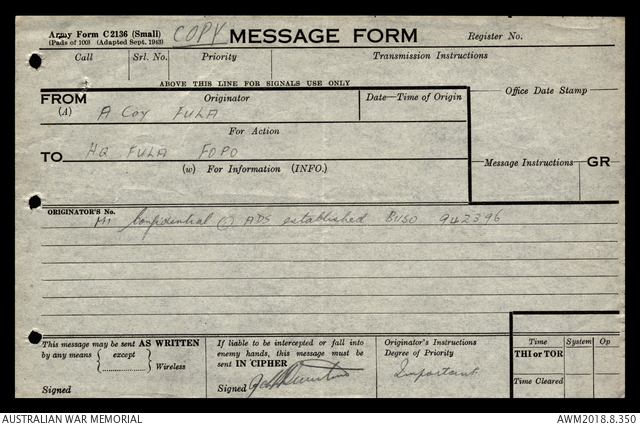 Army Form C2136 (Small)
(Pads of 100) (Adapted Sept. 1943)
COPY
MESSAGE FORM
Register No.
Call
Srl. No.
Priority
Transmission Instructions
ABOVE THIS LINE FOR SIGNALS USE ONLY
FROM
(A)
Originator
Date—Time of Origin
Office Date Stamp
A Coy FULA
For Action
TO
HQ FULA FDPO
(w) For Information (INFO.)
Message Instructions
GR
ORIGINATOR'S No.
M1 Confidential ADS established BUSO 942396
This message may be sent AS WRITTEN
by any means
except
Wireless
Signed
If liable to be intercepted or fall into
enemy hands, this message must be
sent IN CIPHER
Signed
Originator's Instructions
Degree of Priority
Important
Time
System
Op
THI or TOR
Time Cleared
AUSTRALIAN WAR MEMORIAL
AWM2018.8.350